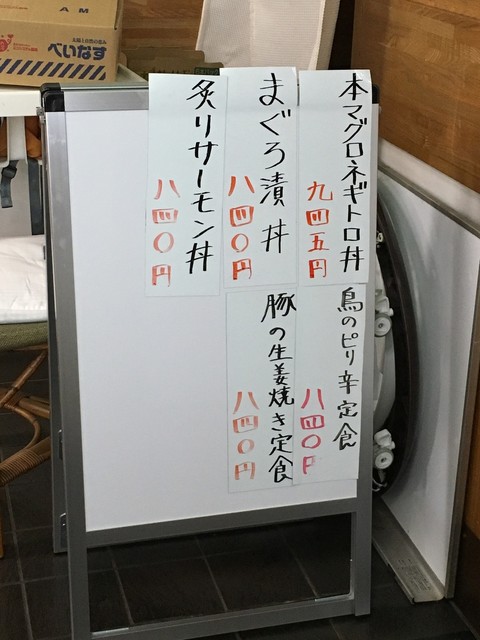 本マグロネギトロ丼
九四五円
まぐろ漬丼
八四〇円
炙りサーモン丼
八四〇円
鳥のピリ辛定食
八四〇円
豚の生姜焼き定食
八四〇円
AM
べいなす